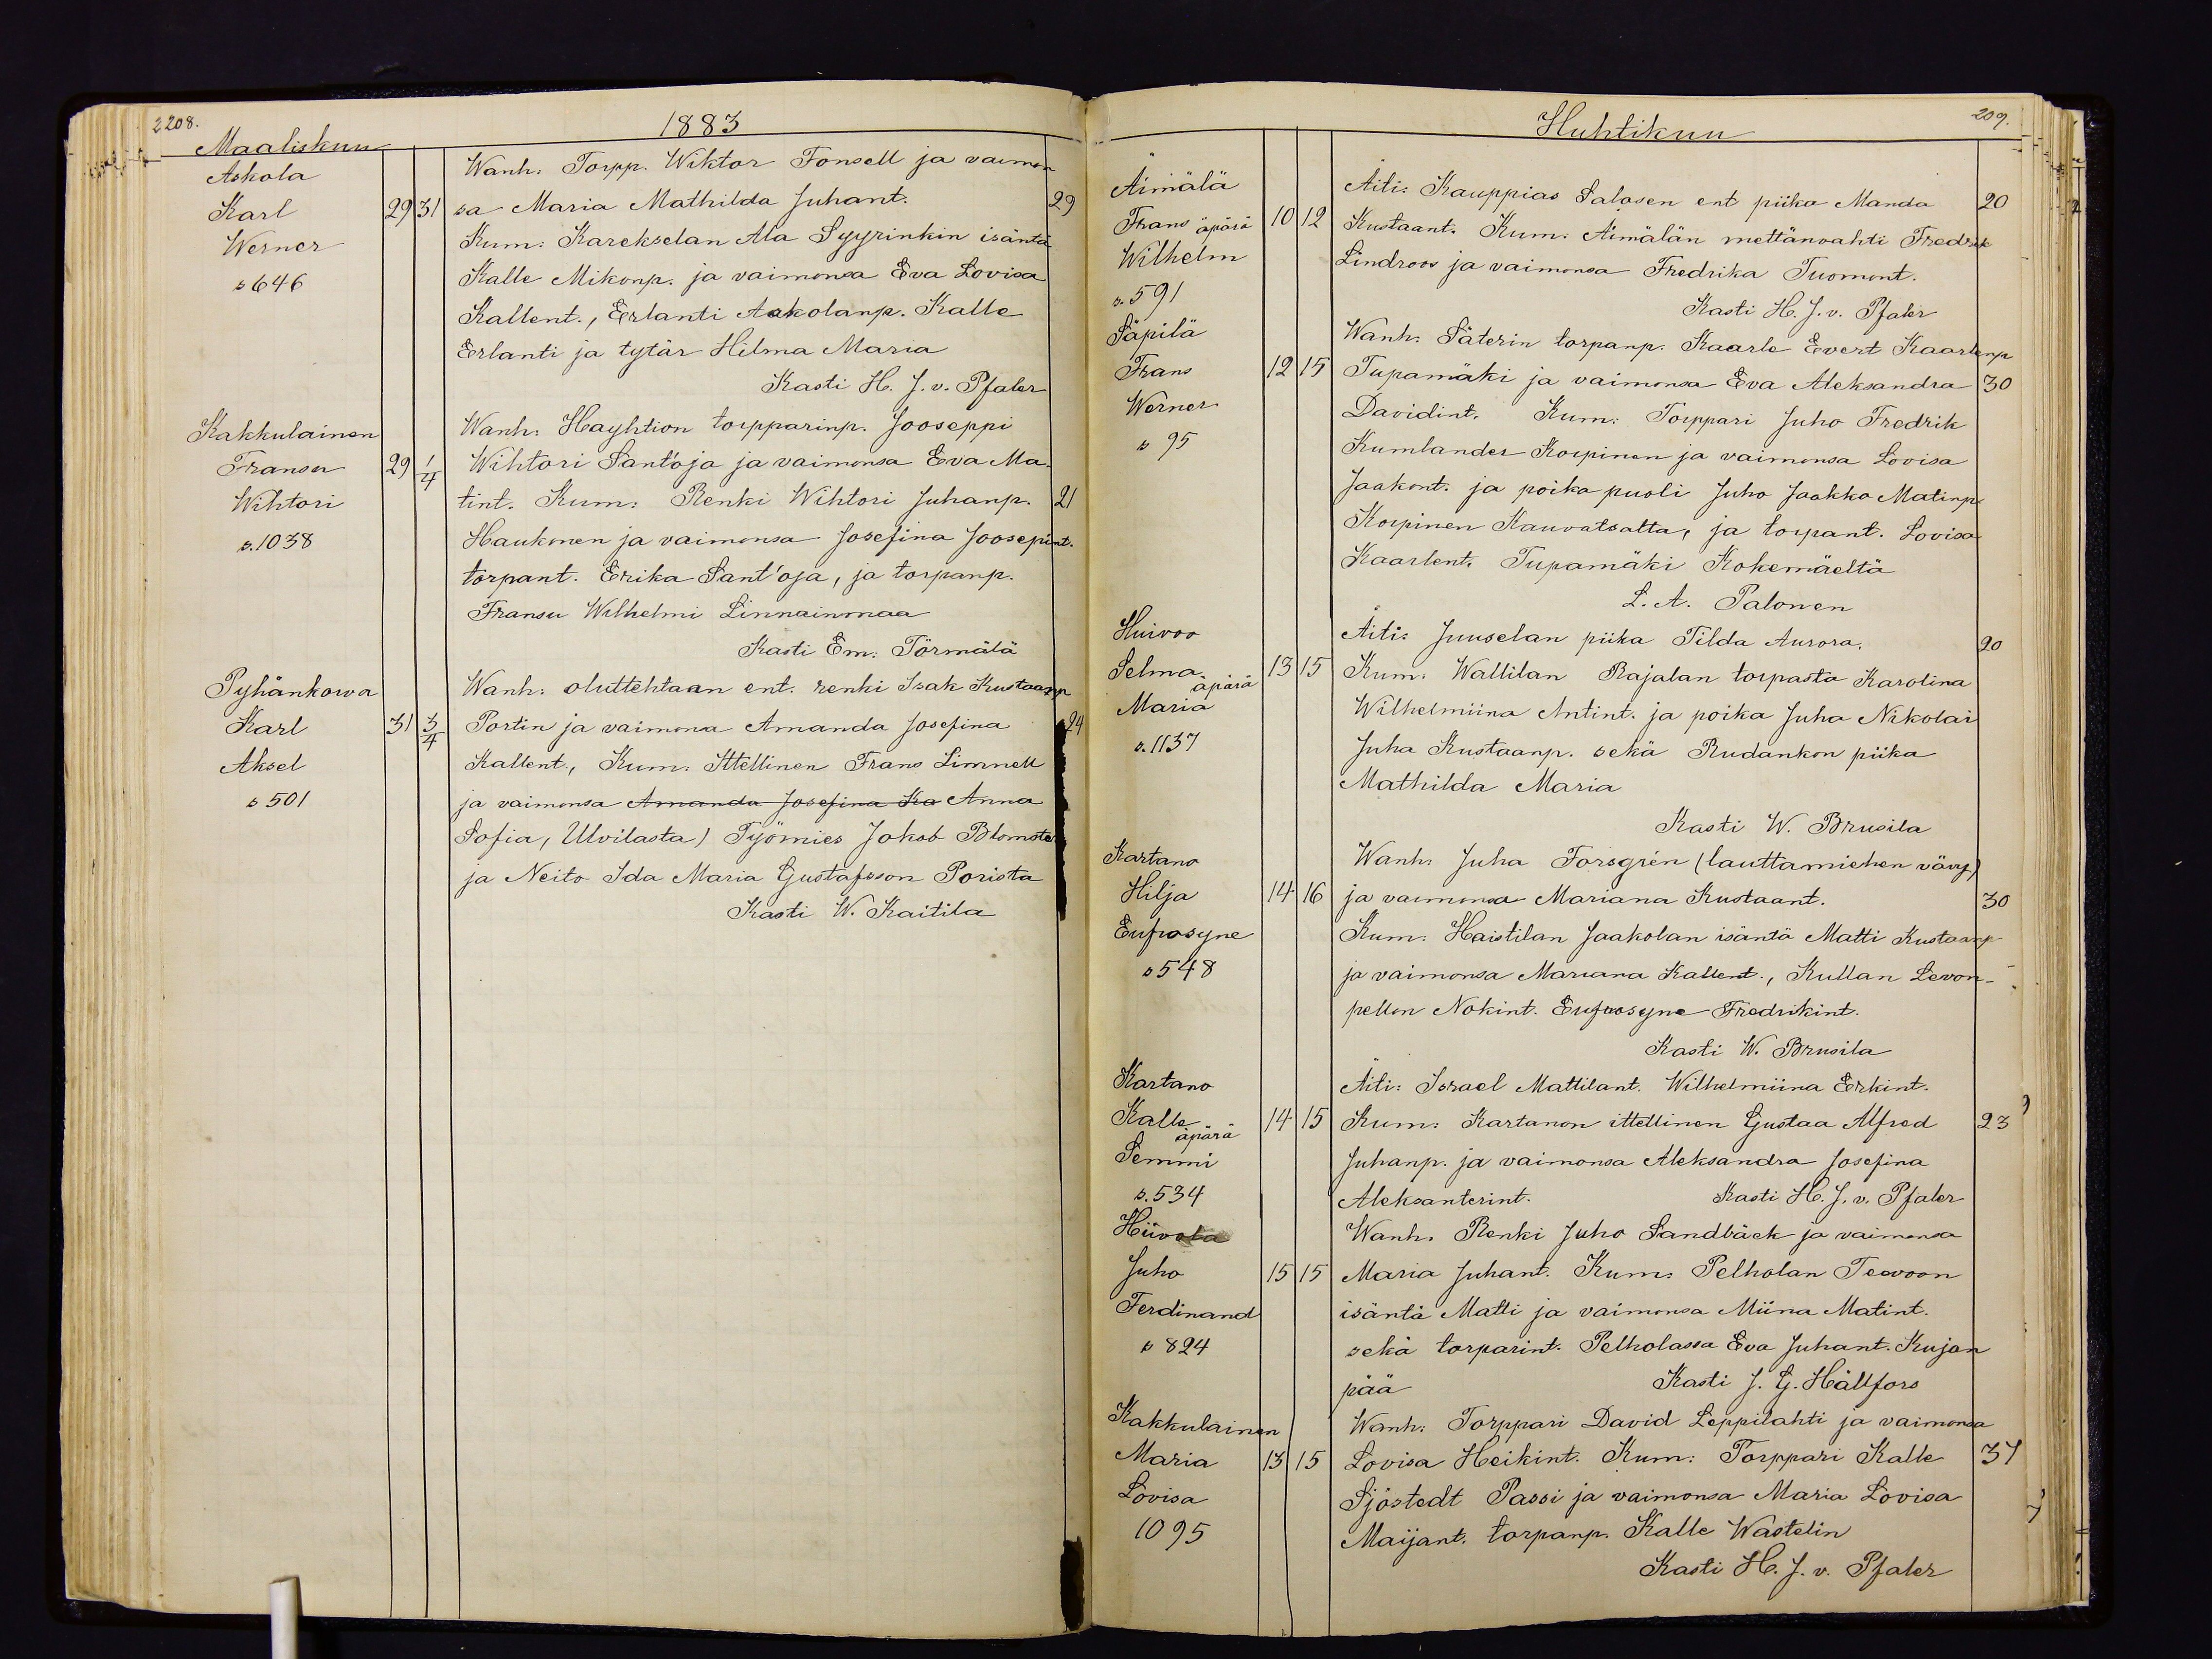 2208.
1883
Maaliskuu
Askola
Wanh: Torpp. Wiktor Fonsell ja vaimon
Karl 29 31 sa Maria Mathilda Juhant. 29
Werner Kum: Karekselan Ala Syyrinkin isäntä
s 646 Kalle Mikonp. ja vaimonsa Eva Lovisa
Kallent., Erlanti Askolanp. Kalle
Erlanti ja tytär Hilma Maria
Kasti H. J. v. Pfaler
Kakkulainen Wanh: Hayhtion torpparinp. Jooseppi
Fransu 29 1/4 Wihtori Sant'oja ja vaimonsa Eva Ma-
Wihtori tint. Kum: Renki Wihtori Juhanp. 21
s. 1038 Haukonen ja vaimonsa Josefina Joosepint.
torpant. Erika Sant'oja, ja torpanp.
Fransu Wilhelmi Linnainmaa
Kasti Em: Törmälä
Pyhänkowa Wanh: oluttehtaan ent. renki Isak Kustaanp
Karl 31 3/4 Portin ja vaimonsa Amanda Josefina 24
Aksel Kallent., Kum: Ittellinen Frans Limnell
s 501 ja vaimonsa Amanda Josefina Ka Anna
Sofia, Ulvilasta) Työmies Jokob Blomste
ja Neito Ida Maria Gustafsson Porista
Kasti W. Kaitila
Huhtikuu
209.
Äimälä Äiti: Kauppias Salosen ent piika Manda 20
Frans äpärä 10 12 Kustaant. Kum: Äimälän mettänvahti Fredrik
Wilhelm Lindroos ja vaimonsa Fredrika Tuomont.
s. 591 Kasti H. J. v. Pfaler
Säpilä Wanh: Säterin torpanp. Kaarle Evert Kaarlenp
Frans 12 15 Tupamäki ja vaimonsa Eva Aleksandra 30
Werner Davidint. Kum: Torppari Juho Fredrik
s 95 Kumlander Korpinen ja vaimonsa Lovisa
Jaakont. ja poika puoli Juho Jaakko Matinp
Korpinen Kauvatsatta, ja torpant. Lovisa
Kaarlent. Tupamäki Kokemäeltä
L. A. Palonen
Huivoo Äiti: Juuselan piika Tilda Aurora. 20
Selma äpärä 13 15 Kum: Wallilan Rajalan torpasta Karolina
Maria Wilhelmiina Antint. ja poika Juha Nikolai
s. 1137 Juha Kustaanp. sekä Rudankon piika
Mathilda Maria
Kasti W. Brusila
Kartano Wanh: Juha Forsgrén (lauttamiehen vävy)
Hilja 14 16 ja vaimonsa Mariana Kustaant. 30
Eufrosyne Kum: Haistilan Jaakolan isäntä Matti Kustaanp
s 548 ja vaimonsa Mariana Kallent., Kullan Levon-
pellon Nokint. Eufrosyne Fredrikint.
Kasti W. Brusila
Kartano Äiti: Israel Mattilant. Wilhelmiina Erkint.
Kalle äpärä 14 15 Kum: Kartanon ittellinen Gustaa Alfred 23
Semmi Juhanp. ja vaimonsa Aleksandra Josefina
s. 534 Aleksanterint. Kasti H. J. v. Pfaler
Hiivola Wanh: Renki Juho Sandbäck ja vaimonsa
Juho 15 15 Maria Juhant. Kum: Pelholan Teevoon
Ferdinand isäntä Matti ja vaimonsa Miina Matint.
s 824 sekä torparint. Pelholassa Eva Juhant. Kujan
pää Kasti J. G. Hällfors
Kakkulainen Wanh: Torppari David Leppilahti ja vaimonsa
Maria 13 15 Lovisa Heikint. Kum: Torppari Kalle 37
Lovisa Sjöstedt Passi ja vaimonsa Maria Lovisa
1095 Maijant. torpanp. Kalle Wastelin
Kasti H. J. v. Pfaler